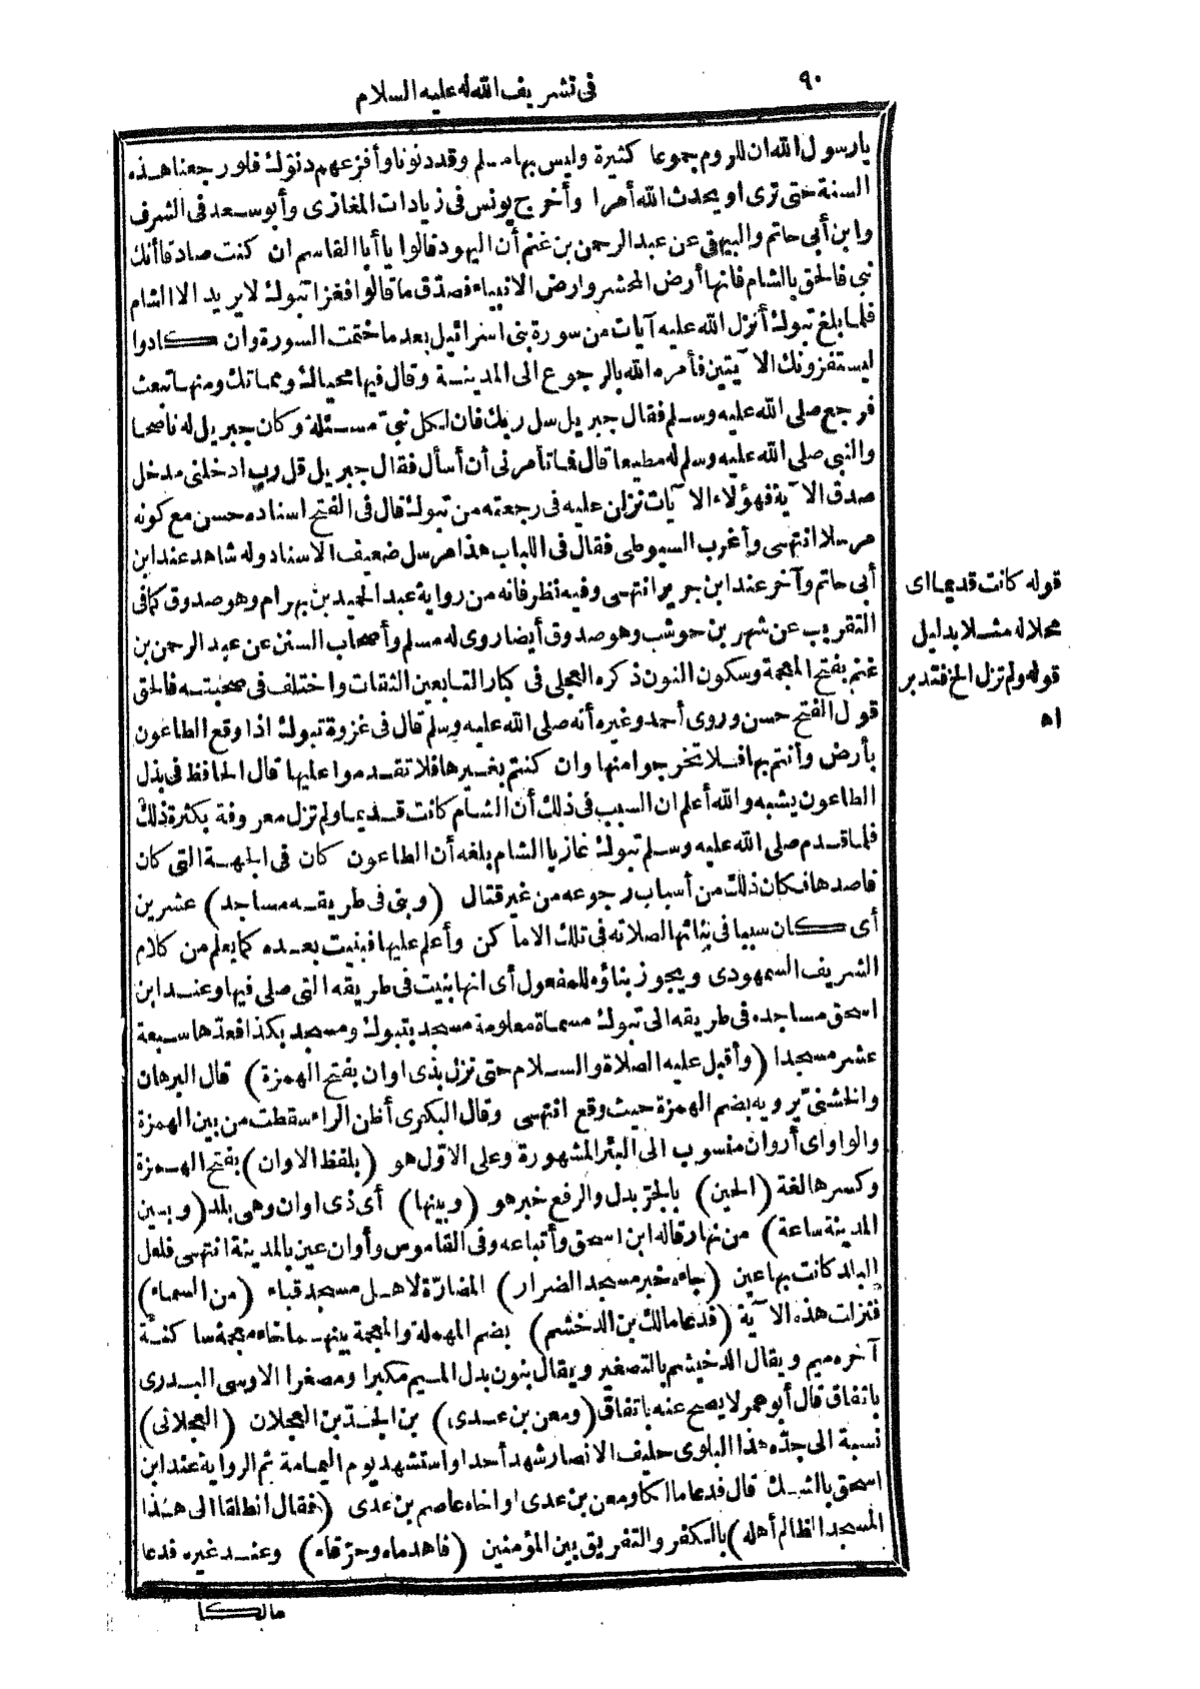 ٩٠
فى تشريف الله له عليه السلام
يارسول الله ان للروم جموعا كثيرة وليس بها مسلم وقد دنونا وأفزعهم دنوّك فلو رجعنا هذه
السنة حتى ترى او يحدث الله أمرا وأخرج يونس فى زيادات المغازى وأبو سعد فى الشرف
وابن أبى حاتم والبيهقى عن عبد الرحمن بن غنم أن اليهود قالوا يا أبا القاسم ان كنت صادقا أنك
نبى فالحق بالشام فانها أرض المحشر وارض الانبياء فصدّق ما قالوا فغزا تبوك لا يريد الا الشام
فلما بلغ تبوك أنزل الله عليه آيات من سورة بنى اسرائيل بعد ما ختمت السورة وان كادوا
ليستفزونك الآيتين فأمره الله بالرجوع الى المدينة وقال فيها محياك ومماتك ومنها تبعث
فرجع صلى الله عليه وسلم فقال جبريل سل ربك فان لكل نبىّ مسئلة وكان جبريل له ناصحا
والنبى صلى الله عليه وسلم له مطيعا قال فما تأمرنى أن أسأل فقال جبريل قل رب ادخلنى مدخل
صدق الآية فهؤلاء الآيات نزلن عليه فى رجعته من تبوك قال فى الفتح اسناده حسن مع كونه
مرسلا انتهى وأغرب السيوطى فقال فى اللباب هذا مرسل ضعيف الاسناد وله شاهد عند ابن
أبى حاتم وآخر عند ابن جرير انتهى وفيه نظر فانه من رواية عبد الحميد بن بهرام وهو صدوق كما فى
التقريب عن شهر بن حوشب وهو صدوق أيضا روى له مسلم وأصحاب السنن عن عبد الرحمن بن
غنم بفتح المعجمة وسكون النون ذكره العجلى فى كبار التابعين الثقات واختلف فى صحبته فالحق
قول الفتح حسن وروى أحمد وغيره أنه صلى الله عليه وسلم قال فى غزوة تبوك اذا وقع الطاعون
بأرض وأنتم بها فلا تخرجوا منها وان كنتم بغيرها فلا تقدموا عليها قال الحافظ فى بذل
الطاعون يشبه والله أعلم ان السبب فى ذلك أن الشام كانت قديما ولم تزل معروفة بكثرة ذلك
فلما قدم صلى الله عليه وسلم تبوك غازيا الشام بلغه أن الطاعون كان فى الجهة التى كان
قاصدها فكان ذلك من أسباب رجوعه من غير قتال (وبنى فى طريقه مساجد) عشرين
أى كان سببا فى بنائها لصلاته فى تلك الاماكن وأعلم عليها فبنيت بعده كما يعلم من كلام
الشريف السمهودى ويجوز بناؤه للمفعول أى انها بنيت فى طريقه التى صلى فيها وعند ابن
اسحق مساجده فى طريقه الى تبوك مسماة معلومة مسجد بتبوك ومسجد بكذا فعدّها سبعة
عشر مسجدا (وأقبل عليه الصلاة والسلام حتى نزل بذى اوان بفتح الهمزة) قال البرهان
والخشنىّ يرويه بضم الهمزة حيث وقع انتهى وقال البكرى أظن الراء سقطت من بين الهمزة
والواو اى أروان منسوب الى البئر المشهورة وعلى الاوّل هو (بلفظ الاوان) بفتح الهمزة
وكسرها لغة (الحين) بالجرّ بدل والرفع خبر هو (وبينها) أى ذى اوان وهى بلد (وبين
المدينة ساعة) من نهار قاله ابن اسحق وأتباعه وفى القاموس وأوان عين بالمدينة انتهى فلعل
البلد كانت بها عين (جاءه خبر مسجد الضرار) المضارّة لاهل مسجد قباء (من السماء)
فنزلت هذه الآية (فدعا مالك بن الدخشم) بضم المهملة والمعجمة بينهما خاء معجمة ساكنة
آخره ميم ويقال الدخيشم بالتصغير ويقال بنون بدل الميم مكبرا ومصغرا الاوسى البدرى
باتفاق قال أبو عمر لا يصح عنه باتفاق (ومعن بن عدى) بن الجدّ بن العجلان (العجلانى)
نسبة الى جدّه هذا البلوى حليف الانصار شهد أحدا واستشهد يوم اليمامة ثم الرواية عند ابن
اسحق بالشك قال فدعا مالكا ومعن بن عدى او اخاه عاصم بن عدى (فقال انطلقا الى هذا
المسجد الظالم أهله) بالكفر والتفريق بين المؤمنين (فاهدماه وحرّقاه) وعند غيره فدعا
مالكا
قوله كانت قديما اى
محلا له مثلا بدليل
قوله ولم تزل الخ فتدبر
اه